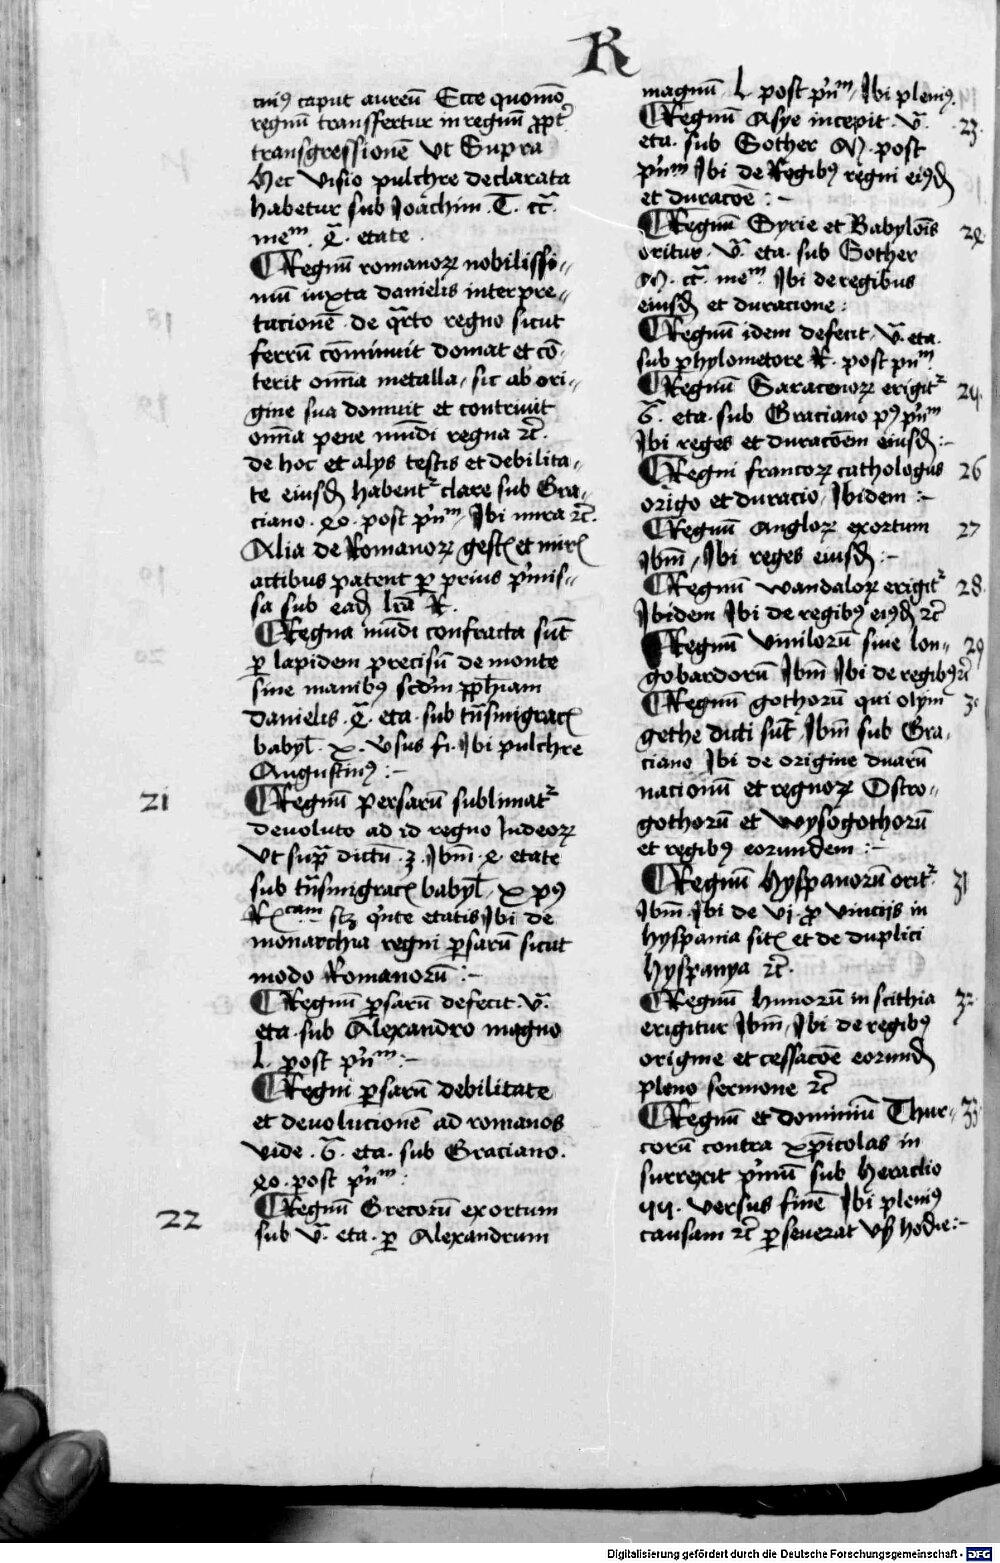 R
cuiꝰ caput aureū Ecce quomō
regnū transfertur in regnū ꝓpt̄
transgressionē vt Supra
Hec visio pulchre declarata
habetur sub Joachim .T. cc̄.
meᵐ. q̄. etate.
Regnū romanoꝝ nobilissi-
mū iuxta danielis interpre-
tacionē. de q̄rto regno sicut
ferrū cōminuit domat et cō-
terit om̄ia metalla, sic ab ori-
gine sua domuit et contriuit
om̄ia pene mūdi regna ⁊c̄.
de hoc et alys testis et debilita-
te eiusd̄ habentᷣ clare sub Gra-
ciano. qo. post pn̄ᵐ, Jbi mira ⁊c̄.
Alia de Romanoꝝ gest̄ et mir̄
actibus patent ꝑ prius pꝰmis-
sa sub ead̄ lr̄a R.
Regna mūdi confracta sūt
ꝑ lapidem precisū de monte
sine manibꝰ scd̄m ꝓph̄iam
danielis. q̄. eta. sub tn̄smigrac̄
babyl. x. v̄sus fi. Jbi pulchre
Augustinꝰ :-
21
Regnū persarū sublimatᷣ
deuoluto ad id regno Judeoꝝ
vt sup̄ dictū. 3. Jbm̄. q. etate
sub tn̄smigrac̄ babyl. x pꝰ
st̄ q̇nte etatis Jbi de
monarchia regni ꝑsarū sicut
modo Romanorū :-
Regnū ꝑsarū defecit. v̄.
eta. sub Alexandro magno
L. post pn̄ᵐ :-
Regni ꝑsarū debilitate
et deuolucionē ad romanos
vide. 6̄. eta. sub Graciano.
qo. post pn̄ᵐ :
22
Regnū Grecorū exortum
sub v̄. eta. ꝑ Alexandrum
magnū. L. post pn̄ᵐ, Jbi pleniꝰ.
Regnū Asye incepit. v̄. 23
eta. sub Sother M. post
pn̄ᵐ Jbi de Regibꝰ regni eiꝰd̄
et duracōe :-
Regnū Syrie et Babylōis 24
oritur. v̄. eta. sub Sother
M. cc̄. meᵐ. Jbi de regibus
eiusd̄ et duracione :
Regnū idem defecit, v̄. eta.
sub phylometore R. post pn̄ᵐ
Regnū Saracenoꝝ erigitᷣ 25
6̄. eta. sub Graciano pꝰ pn̄ᵐ
Jbi reges et duracōem eiusd̄ :-
Regni francoꝝ cathologus 26
origo et duracio, Jbidem :-
Regnū Angloꝝ exortum 27
Jbm̄, Jbi reges eiusd̄ :-
Regnū wandaloꝝ erigitᷣ 28
Jbidem Jbi de regibꝰ eiꝰd̄ ⁊c̄
Regnū vinilorū siue lon- 29
gobardorū Jbm̄ Jbi de regibꝰ ⁊c̄
Regnū gothorū qui olym 30
gethe dicti sūt, Jbm̄ sub Gra-
ciano Jbi de origine duarū
nacionū et regnoꝝ Ostro-
gothorū et wysogothorū
et regibꝰ eorundem :-
Regnū Hyspanorū oritᷣ. 31
Jbm̄. Jbi de vj. ꝓvincijs in
hyspania sit̄ et de duplici
Hyspanya ⁊c̄.
Regnū hunorū in scithia 32
erigitur Jbm̄, Jbi de regibꝰ
origine et cessacōe eorund̄
pleno sermone ⁊c̄
Regnū et dominiū Thur- 33
corū contra xp̄icolas in
surrexit pꝰmū sub heraclio
versus finē Jbi pleniꝰ
causam ⁊c̄ ꝑseuerat vsqꝫ hodie :-
Digitalisierung gefördert durch die Deutsche Forschungsgemeinschaft - DFG